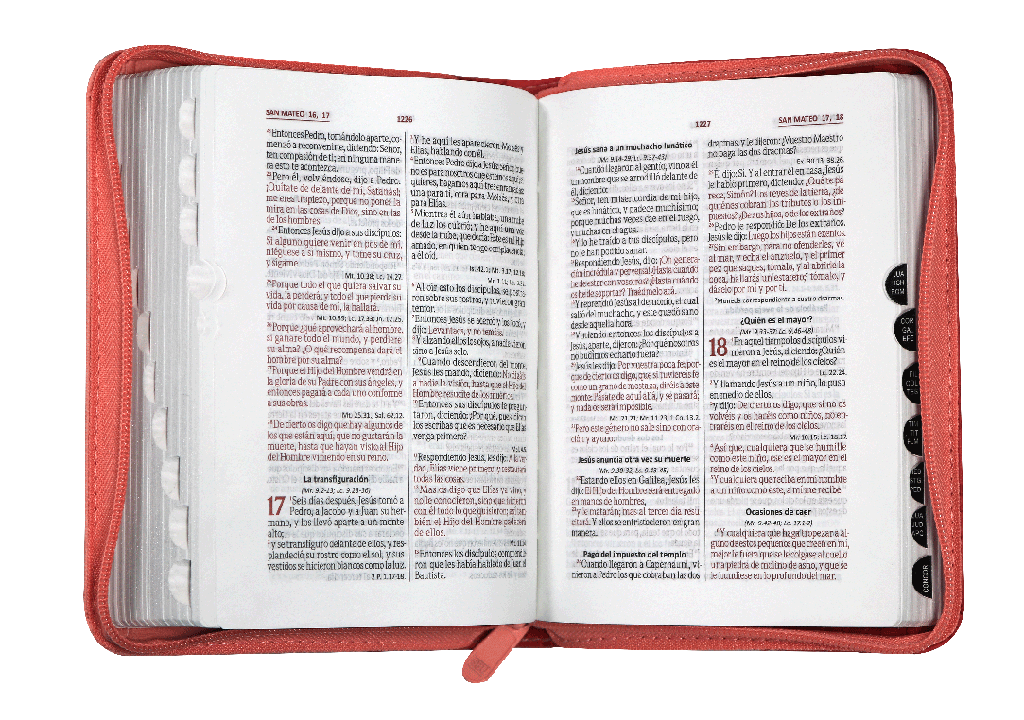 SAN MATEO 16, 17
1226
²²Entonces Pedro, tomándolo aparte, co-
menzó a reconvenirle, diciendo: Señor,
ten compasión de ti; en ninguna mane-
ra esto te acontezca.
²³Pero él, volviéndose, dijo a Pedro:
¡Quítate de delante de mí, Satanás!;
me eres tropiezo, porque no pones la
mira en las cosas de Dios, sino en las
de los hombres.
²⁴Entonces Jesús dijo a sus discípulos:
Si alguno quiere venir en pos de mí,
niéguese a sí mismo, y tome su cruz,
y sígame.
Mt. 10.38; Lc. 14.27.
²⁵Porque todo el que quiera salvar su
vida, la perderá; y todo el que pierda su
vida por causa de mí, la hallará.
Mt. 10.39; Lc. 17.33; Jn. 12.25.
²⁶Porque ¿qué aprovechará al hombre,
si ganare todo el mundo, y perdiere
su alma? ¿O qué recompensa dará el
hombre por su alma?
²⁷Porque el Hijo del Hombre vendrá en
la gloria de su Padre con sus ángeles, y
entonces pagará a cada uno conforme
a sus obras.
Mt. 25.31; Sal. 62.12.
²⁸De cierto os digo que hay algunos de
los que están aquí, que no gustarán la
muerte, hasta que hayan visto al Hijo
del Hombre viniendo en su reino.
La transfiguración
(Mr. 9.2-13; Lc. 9.28-36)
17 ¹Seis días después, Jesús tomó a
Pedro, a Jacobo y a Juan su her-
mano, y los llevó aparte a un monte
alto;
²y se transfiguró delante de ellos, y res-
plandeció su rostro como el sol, y sus
vestidos se hicieron blancos como la luz.
2 P. 1.17-18.
³Y he aquí les aparecieron Moisés y
Elías, hablando con él.
⁴Entonces Pedro dijo a Jesús: Señor, que
no es para nosotros que estemos aquí; si
quieres, hagamos aquí tres enramadas:
una para ti, otra para Moisés, y otra
para Elías.
⁵Mientras él aún hablaba, una nube
de luz los cubrió; y he aquí una voz
desde la nube, que decía: Este es mi Hijo
amado, en quien tengo complacencia;
a él oíd.
Is. 42.1; Mt. 3.17; 12.18;
⁶Al oír esto los discípulos, se postra-
ron sobre sus rostros, y tuvieron gran
temor.
⁷Entonces Jesús se acercó y los tocó, y
dijo: Levantaos, y no temáis.
⁸Y alzando ellos los ojos, a nadie vieron,
sino a Jesús solo.
⁹Cuando descendieron del monte,
Jesús les mandó, diciendo: No digáis
a nadie la visión, hasta que el Hijo del
Hombre resucite de los muertos.
¹⁰Entonces sus discípulos le pregun-
taron, diciendo: ¿Por qué, pues, dicen
los escribas que es necesario que Elías
venga primero?
Mal. 4.5.
¹¹Respondiendo Jesús, les dijo: A la ver-
dad, Elías viene primero, y restaurará
todas las cosas.
¹²Mas os digo que Elías ya vino, y
no le conocieron, sino que hicieron
con él todo lo que quisieron; así tam-
bién el Hijo del Hombre padecerá
de ellos.
Mt. 11.14.
¹³Entonces los discípulos comprendie-
ron que les había hablado de Juan el
Bautista.
1227
SAN MATEO 17, 18
Jesús sana a un muchacho lunático
(Mr. 9.14-29; Lc. 9.37-43)
¹⁴Cuando llegaron al gentío, vino a él
un hombre que se arrodilló delante de
él, diciendo:
¹⁵Señor, ten misericordia de mi hijo,
que es lunático, y padece muchísimo;
porque muchas veces cae en el fuego,
y muchas en el agua.
¹⁶Y lo he traído a tus discípulos, pero
no le han podido sanar.
¹⁷Respondiendo Jesús, dijo: ¡Oh genera-
ción incrédula y perversa! ¿Hasta cuándo
he de estar con vosotros? ¿Hasta cuándo
os he de soportar? Traédmelo acá.
¹⁸Y reprendió Jesús al demonio, el cual
salió del muchacho, y este quedó sano
desde aquella hora.
¹⁹Viniendo entonces los discípulos a
Jesús, aparte, dijeron: ¿Por qué nosotros
no pudimos echarlo fuera?
²⁰Jesús les dijo: Por vuestra poca fe; por-
que de cierto os digo, que si tuviereis fe
como un grano de mostaza, diréis a este
monte: Pásate de aquí allá, y se pasará;
y nada os será imposible.
Mt. 21.21; Mr. 11.23; 1 Co. 13.2.
²¹Pero este género no sale sino con ora-
ción y ayuno.
Jesús anuncia otra vez su muerte
(Mr. 9.30-32; Lc. 9.43-45)
²²Estando ellos en Galilea, Jesús les
dijo: El Hijo del Hombre será entregado
en manos de hombres,
²³y le matarán; mas al tercer día resu-
citará. Y ellos se entristecieron en gran
manera.
Pago del impuesto del templo
²⁴Cuando llegaron a Capernaum, vi-
nieron a Pedro los que cobraban las dos
dracmas, y le dijeron: ¿Vuestro Maestro
no paga las dos dracmas?
Ex. 30.13; 38.26.
²⁵Él dijo: Sí. Y al entrar él en casa, Jesús
le habló primero, diciendo: ¿Qué te pa-
rece, Simón? Los reyes de la tierra, ¿de
quiénes cobran los tributos o los im-
puestos? ¿De sus hijos, o de los extraños?
²⁶Pedro le respondió: De los extraños.
Jesús le dijo: Luego los hijos están exentos.
²⁷Sin embargo, para no ofenderles, ve
al mar, y echa el anzuelo, y el primer
pez que saques, tómalo, y al abrirle la
boca, hallarás un estatero; tómalo, y
dáselo por mí y por ti.
*Moneda correspondiente a cuatro dracmas.
¿Quién es el mayor?
(Mr. 9.33-37; Lc. 9.46-48)
18 ¹En aquel tiempo los discípulos vi-
nieron a Jesús, diciendo: ¿Quién
es el mayor en el reino de los cielos?
Lc. 22.24.
²Y llamando Jesús a un niño, lo puso
en medio de ellos,
³y dijo: De cierto os digo, que si no os
volvéis y os hacéis como niños, no en-
traréis en el reino de los cielos.
Mr. 10.15; Lc. 18.17.
⁴Así que, cualquiera que se humille
como este niño, ese es el mayor en el
reino de los cielos.
⁵Y cualquiera que reciba en mi nombre
a un niño como este, a mí me recibe.
Ocasiones de caer
(Mr. 9.42-48; Lc. 17.1-2)
⁶Y cualquiera que haga tropezar a al-
guno de estos pequeños que creen en mí,
mejor le fuera que se le colgase al cuello
una piedra de molino de asno, y que se
le hundiese en lo profundo del mar.
JUA
HCH
ROM
COR
GA.
EFE
FIL
COL
TES
TIM
TIT
FLM
HEB
STG
PED
JUA
JUD
APO
CONCOR